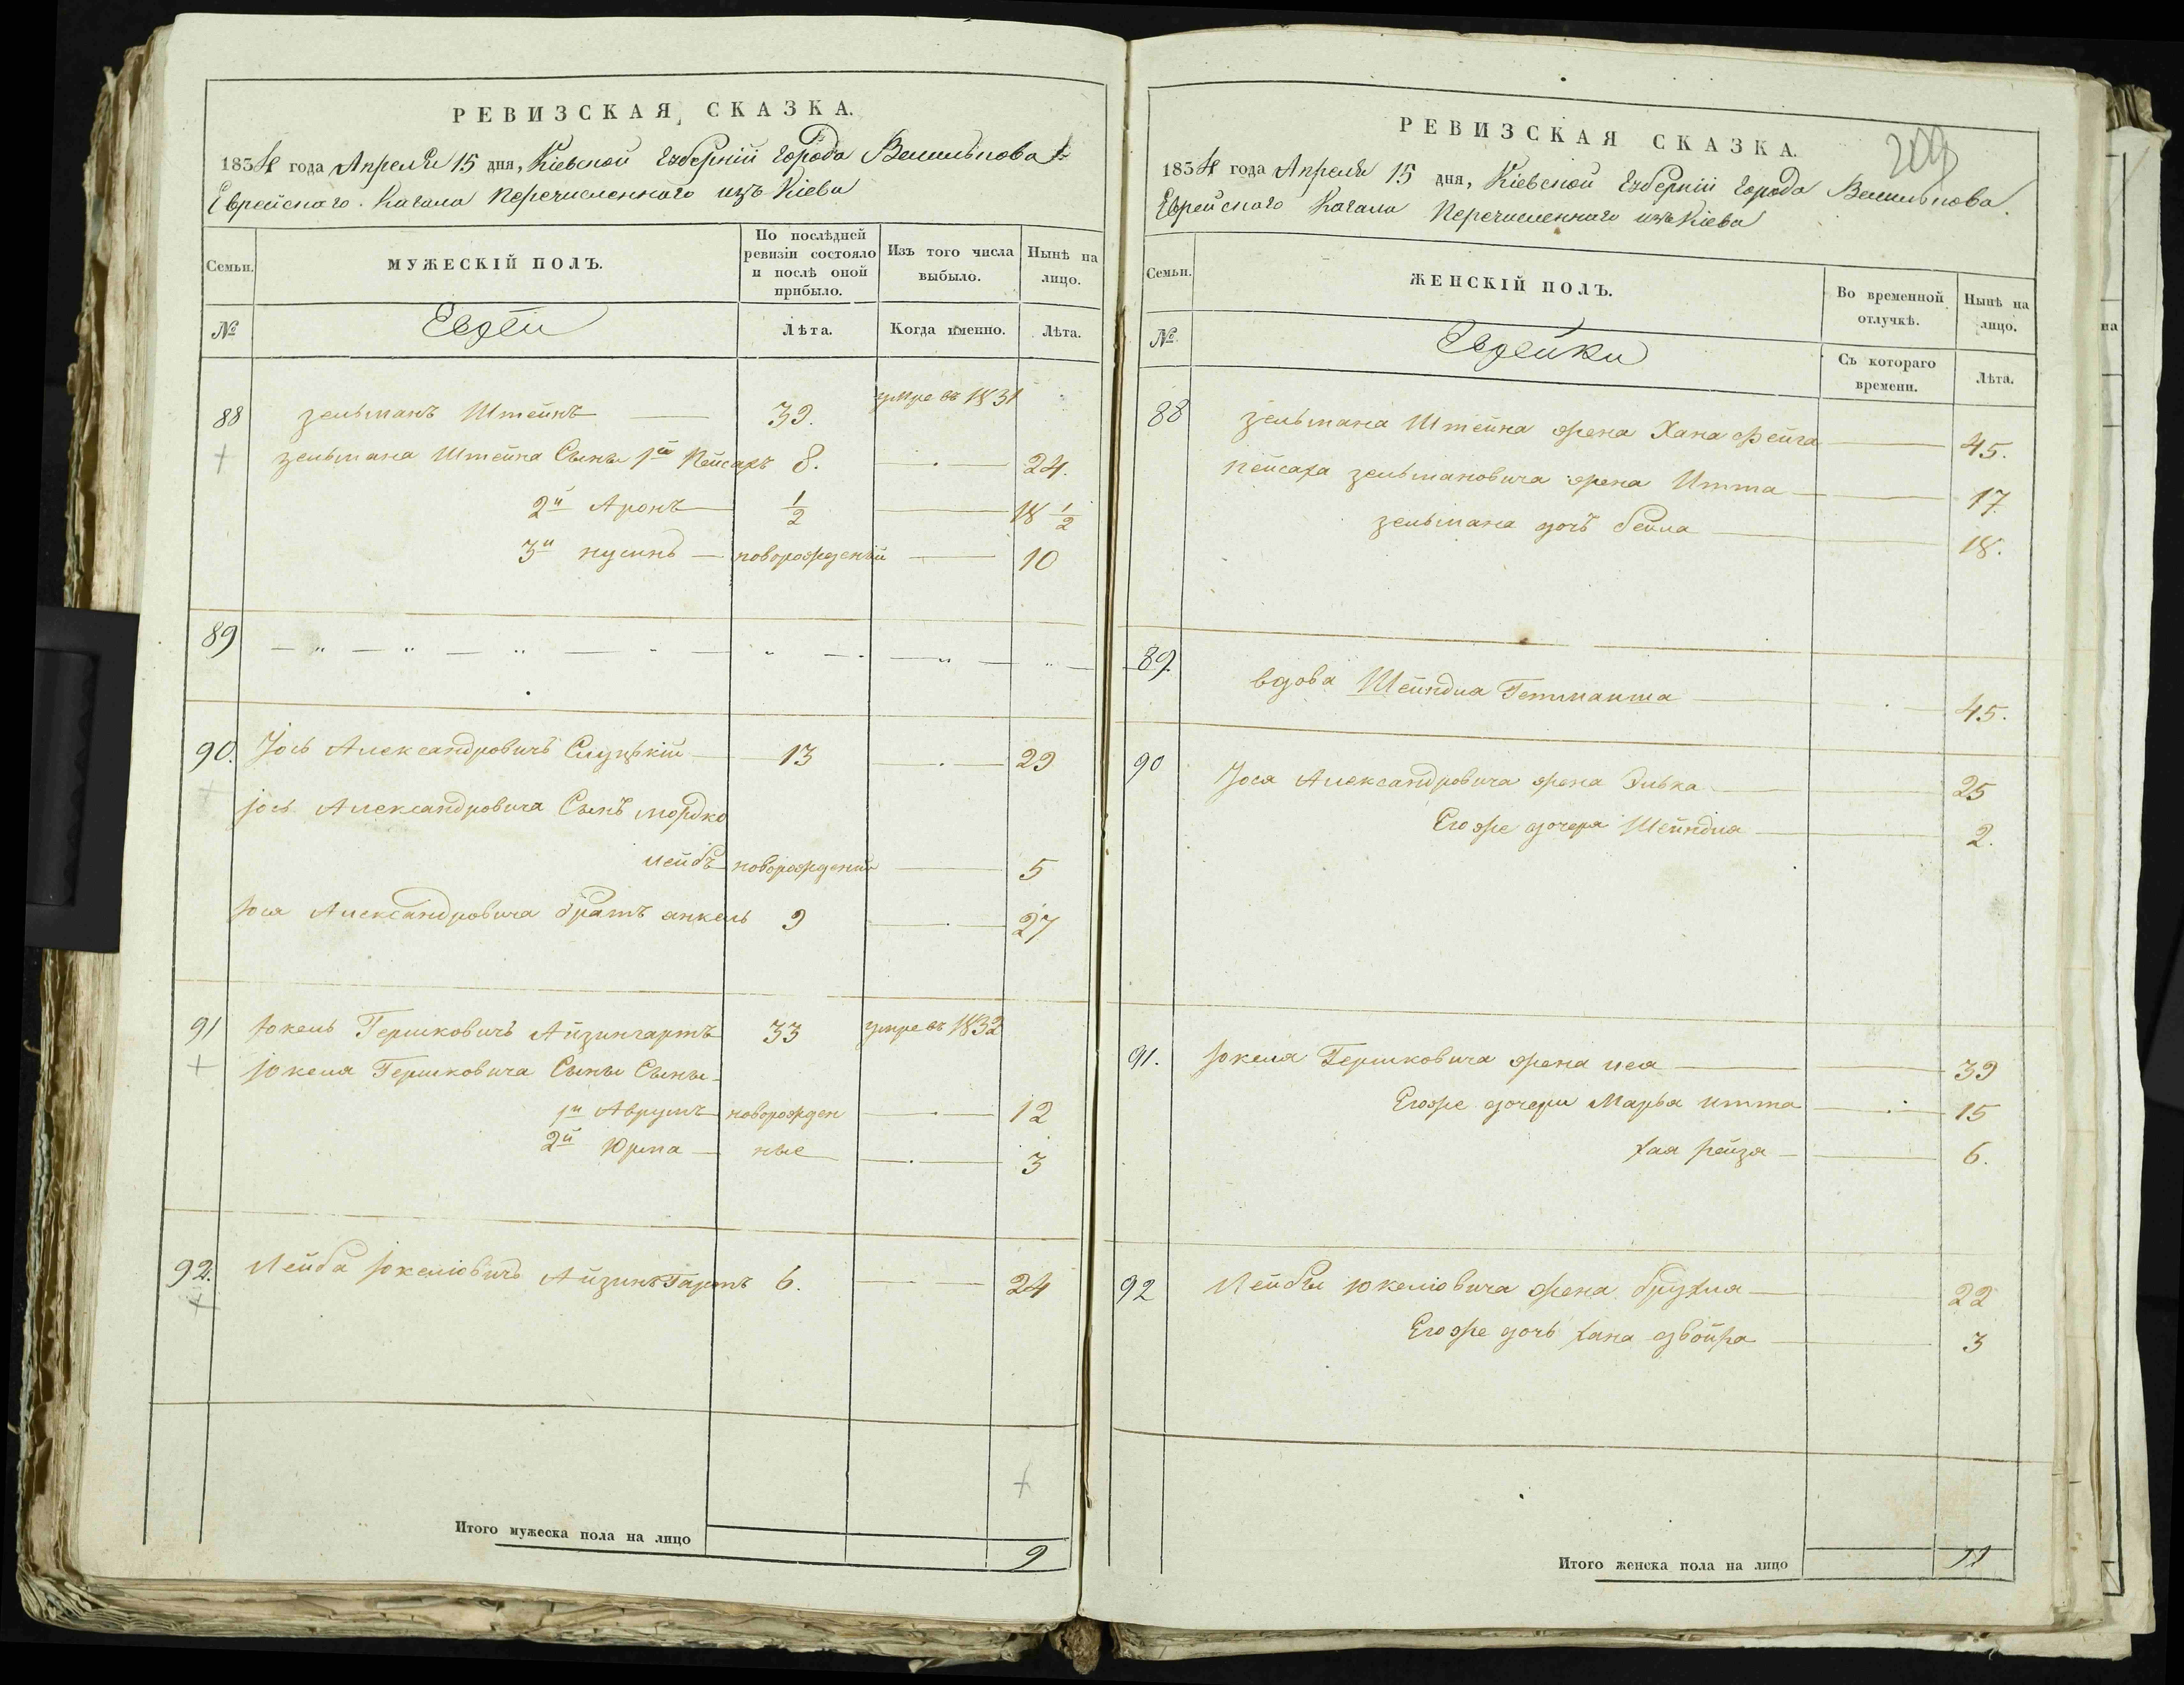 РЕВИЗСКАЯ СКАЗКА.
1834 года Апреля 15 дня, Кіевской Губерніи города Василькова
Еврейскаго Кагала перечисленнаго изъ Кіева
Семьи.
МУЖЕСКІЙ ПОЛЪ.
По послѣдней ревизіи состояло и послѣ оной прибыло.
Изъ того числа выбыло.
Нынѣ на лицо.
№
Евреи
Лѣта.
Когда именно.
Лѣта.
88 зельманъ Штейнъ 39. умре въ 1831
зельмана Штейна Сыны 1й Пейсахъ 8. 24.
2й Аронъ 1/2 18 1/2
3й нусинъ новорожденый 10
89
90. Іось Александровичъ Слуцкій 13 29
іось Александровича Сынъ мордко
лейбъ новорожденый 5
Іося Александровича братъ анкель 9 27
91 Іокель Гершковичъ Айзингартъ 33 умре въ 1832
Іокеля Гершковича Сыны Сыны
1й Аврумъ новорожден 12
2й Юрма ные 3
92. Лейба Іокеліовичъ Айзинъгартъ 6. 24
Итого мужеска пола на лицо 9
209
РЕВИЗСКАЯ СКАЗКА.
1834 года Апреля 15 дня, Кіевской Губерніи города Василькова
Еврейскаго Кагала Перечисленнаго изъ Кіева
Семьи.
ЖЕНСКІЙ ПОЛЪ.
Во временной отлучкѣ.
Нынѣ на лицо.
№
Еврейки
Съ котораго времени.
Лѣта.
88 зельмана Штейна жена Хана фейга 45.
пейсаха зельмановича жена Итта 17
зельмана дочъ бейла 18.
89. вдова Шейндла Гетманша 45.
90 Іося Александровича жена Элька 25
Его же дочеря Шейндла 2.
91. Іокеля Гершковича жена лея 39
Его же дочери Марья итта 15
хая рейзя 6.
92 Лейбы Іокеліовича жена брухла 22
Его же дочъ хана двойра 3
Итого женска пола на лицо 11